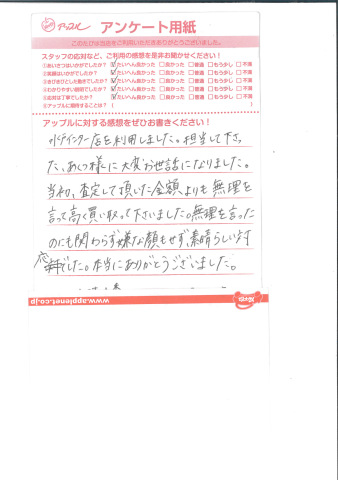 アップル アンケート用紙
このたびは当店をご利用いただきありがとうございました。
スタッフの応対など、ご利用の感想を是非お聞かせください！
①あいさつはいかがでしたか？ ☑たいへん良かった □良かった □普通 □もう少し □不満
②笑顔はいかがでしたか？ ☑たいへん良かった □良かった □普通 □もう少し □不満
③きびきびとした動きでしたか？ ☑たいへん良かった □良かった □普通 □もう少し □不満
④わかりやすい説明でしたか？ ☑たいへん良かった □良かった □普通 □もう少し □不満
⑤応対は丁寧でしたか？ ☑たいへん良かった □良かった □普通 □もう少し □不満
⑥アップルに期待することは？（
アップルに対する感想をぜひお書きください！
インター店を利用しました。担当して下さっ
た、あくつ様に大変お世話になりました。
当初、査定して頂いた金額よりも無理を
言って高く買い取って下さいました。無理を言った
のにも関わらず嫌な顔もせず、素晴らしい対
応でした。本当にありがとうございました。
www.applenet.co.jp